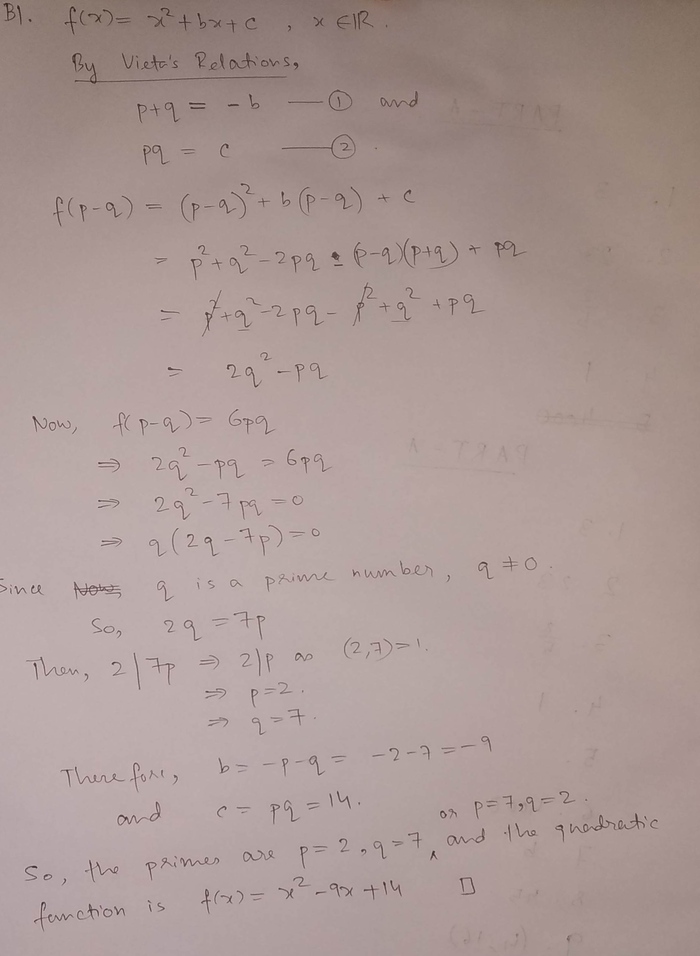 B1. f(x) = x² + bx + c , x ∈ ℝ.
By Vieta's Relations,
p+q = -b — ① and
pq = c — ② .
f(p-q) = (p-q)² + b(p-q) + c
= p² + q² - 2pq - (p-q)(p+q) + pq
= p² + q² - 2pq - p² + q² + pq
= 2q² - pq
Now, f(p-q) = 6pq
⇒ 2q² - pq = 6pq
⇒ 2q² - 7pq = 0
⇒ q(2q - 7p) = 0
Since Now, q is a prime number, q ≠ 0.
So, 2q = 7p
Then, 2|7p ⇒ 2|p as (2,7)=1.
⇒ p=2.
⇒ q=7.
Therefore, b = -p-q = -2-7 = -9
and c = pq = 14.
or p=7, q=2.
So, the primes are p=2, q=7 ‸ and the quadratic
function is f(x) = x² - 9x + 14 □